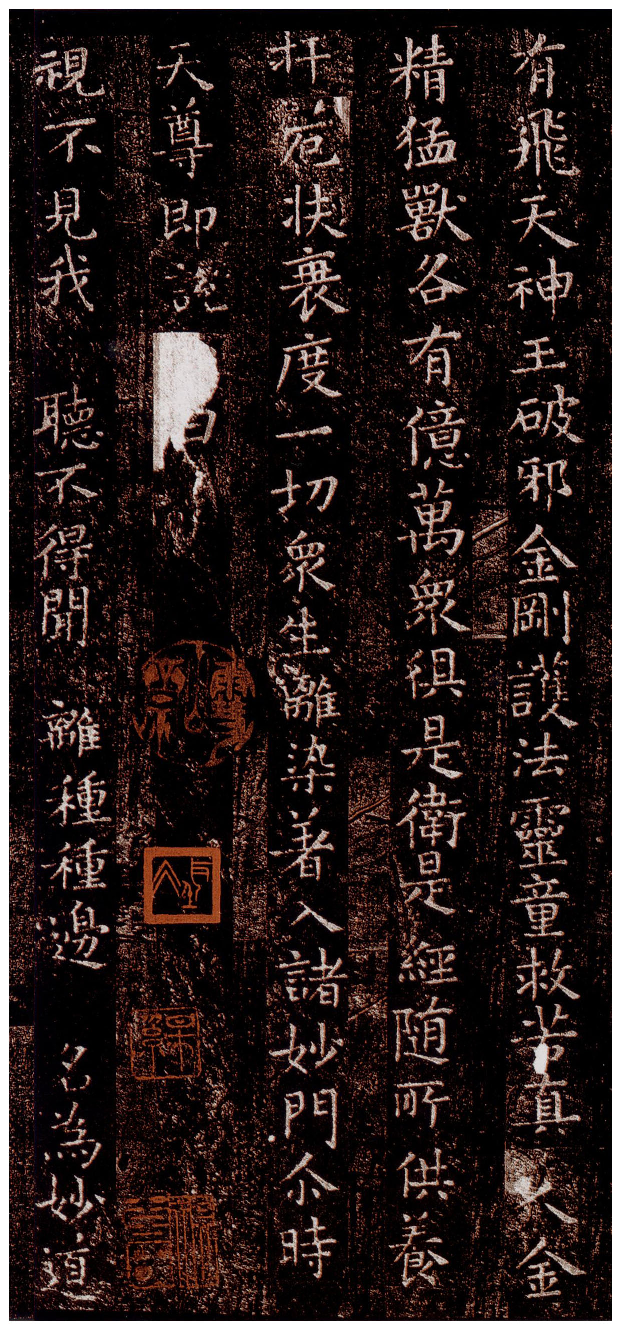 有飛天神王破邪金剛護法靈童救苦真人金
精猛獸各有億萬衆俱是衛是經随所供養
扞厄扶衰度一切衆生離染著入諸妙門尒時
天尊即説曰
視不見我 聽不得聞 離種種邊 名為妙道